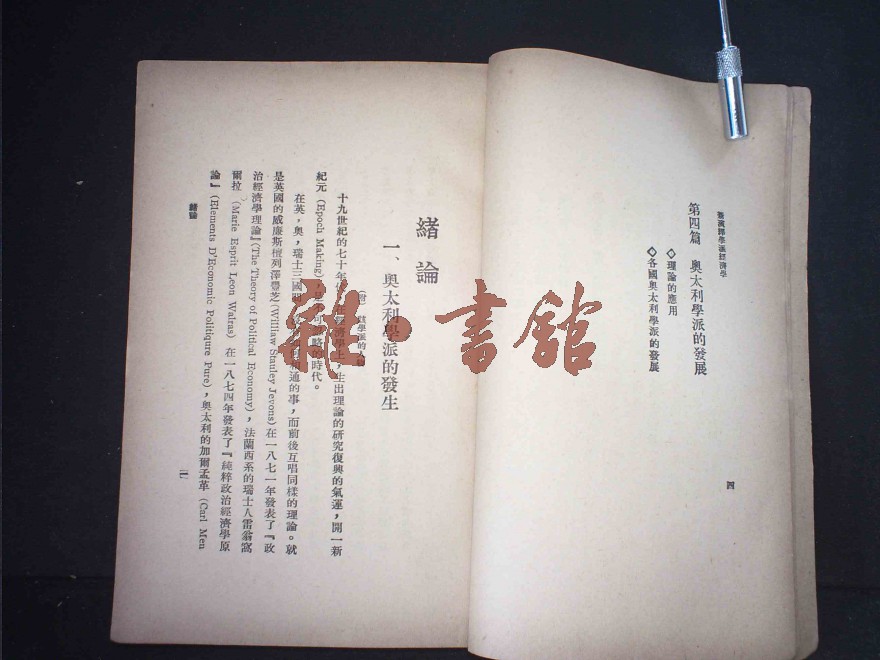 臺灣學派經濟學
第四篇 奧太利學派的發展
◇理論的應用
◇各國奧太利學派的發展
四
緒論
一、奧太利學派的發生
十九世紀的七十年 經濟學上,生出理論的研究復興的氣運,開一新
紀元(Epoch Making), 的時代。
在英,奧,瑞士三國 通的事,而前後互唱同樣的理論。就
是英國的威廉斯 列澤豐芝(William Stauley Jevons)在一八七一年發表了『政
治經濟學理論』(The Theory of Political Economy),法蘭西系的瑞士人雷翁窩
爾拉(Marie Esprit Leon Walras)在一八七四年發表了『純粹政治經濟學原
論』(Elements D'Economic Politiqure Pure),奧太利的加爾孟革(Carl Men
緒論
一
雜·書館